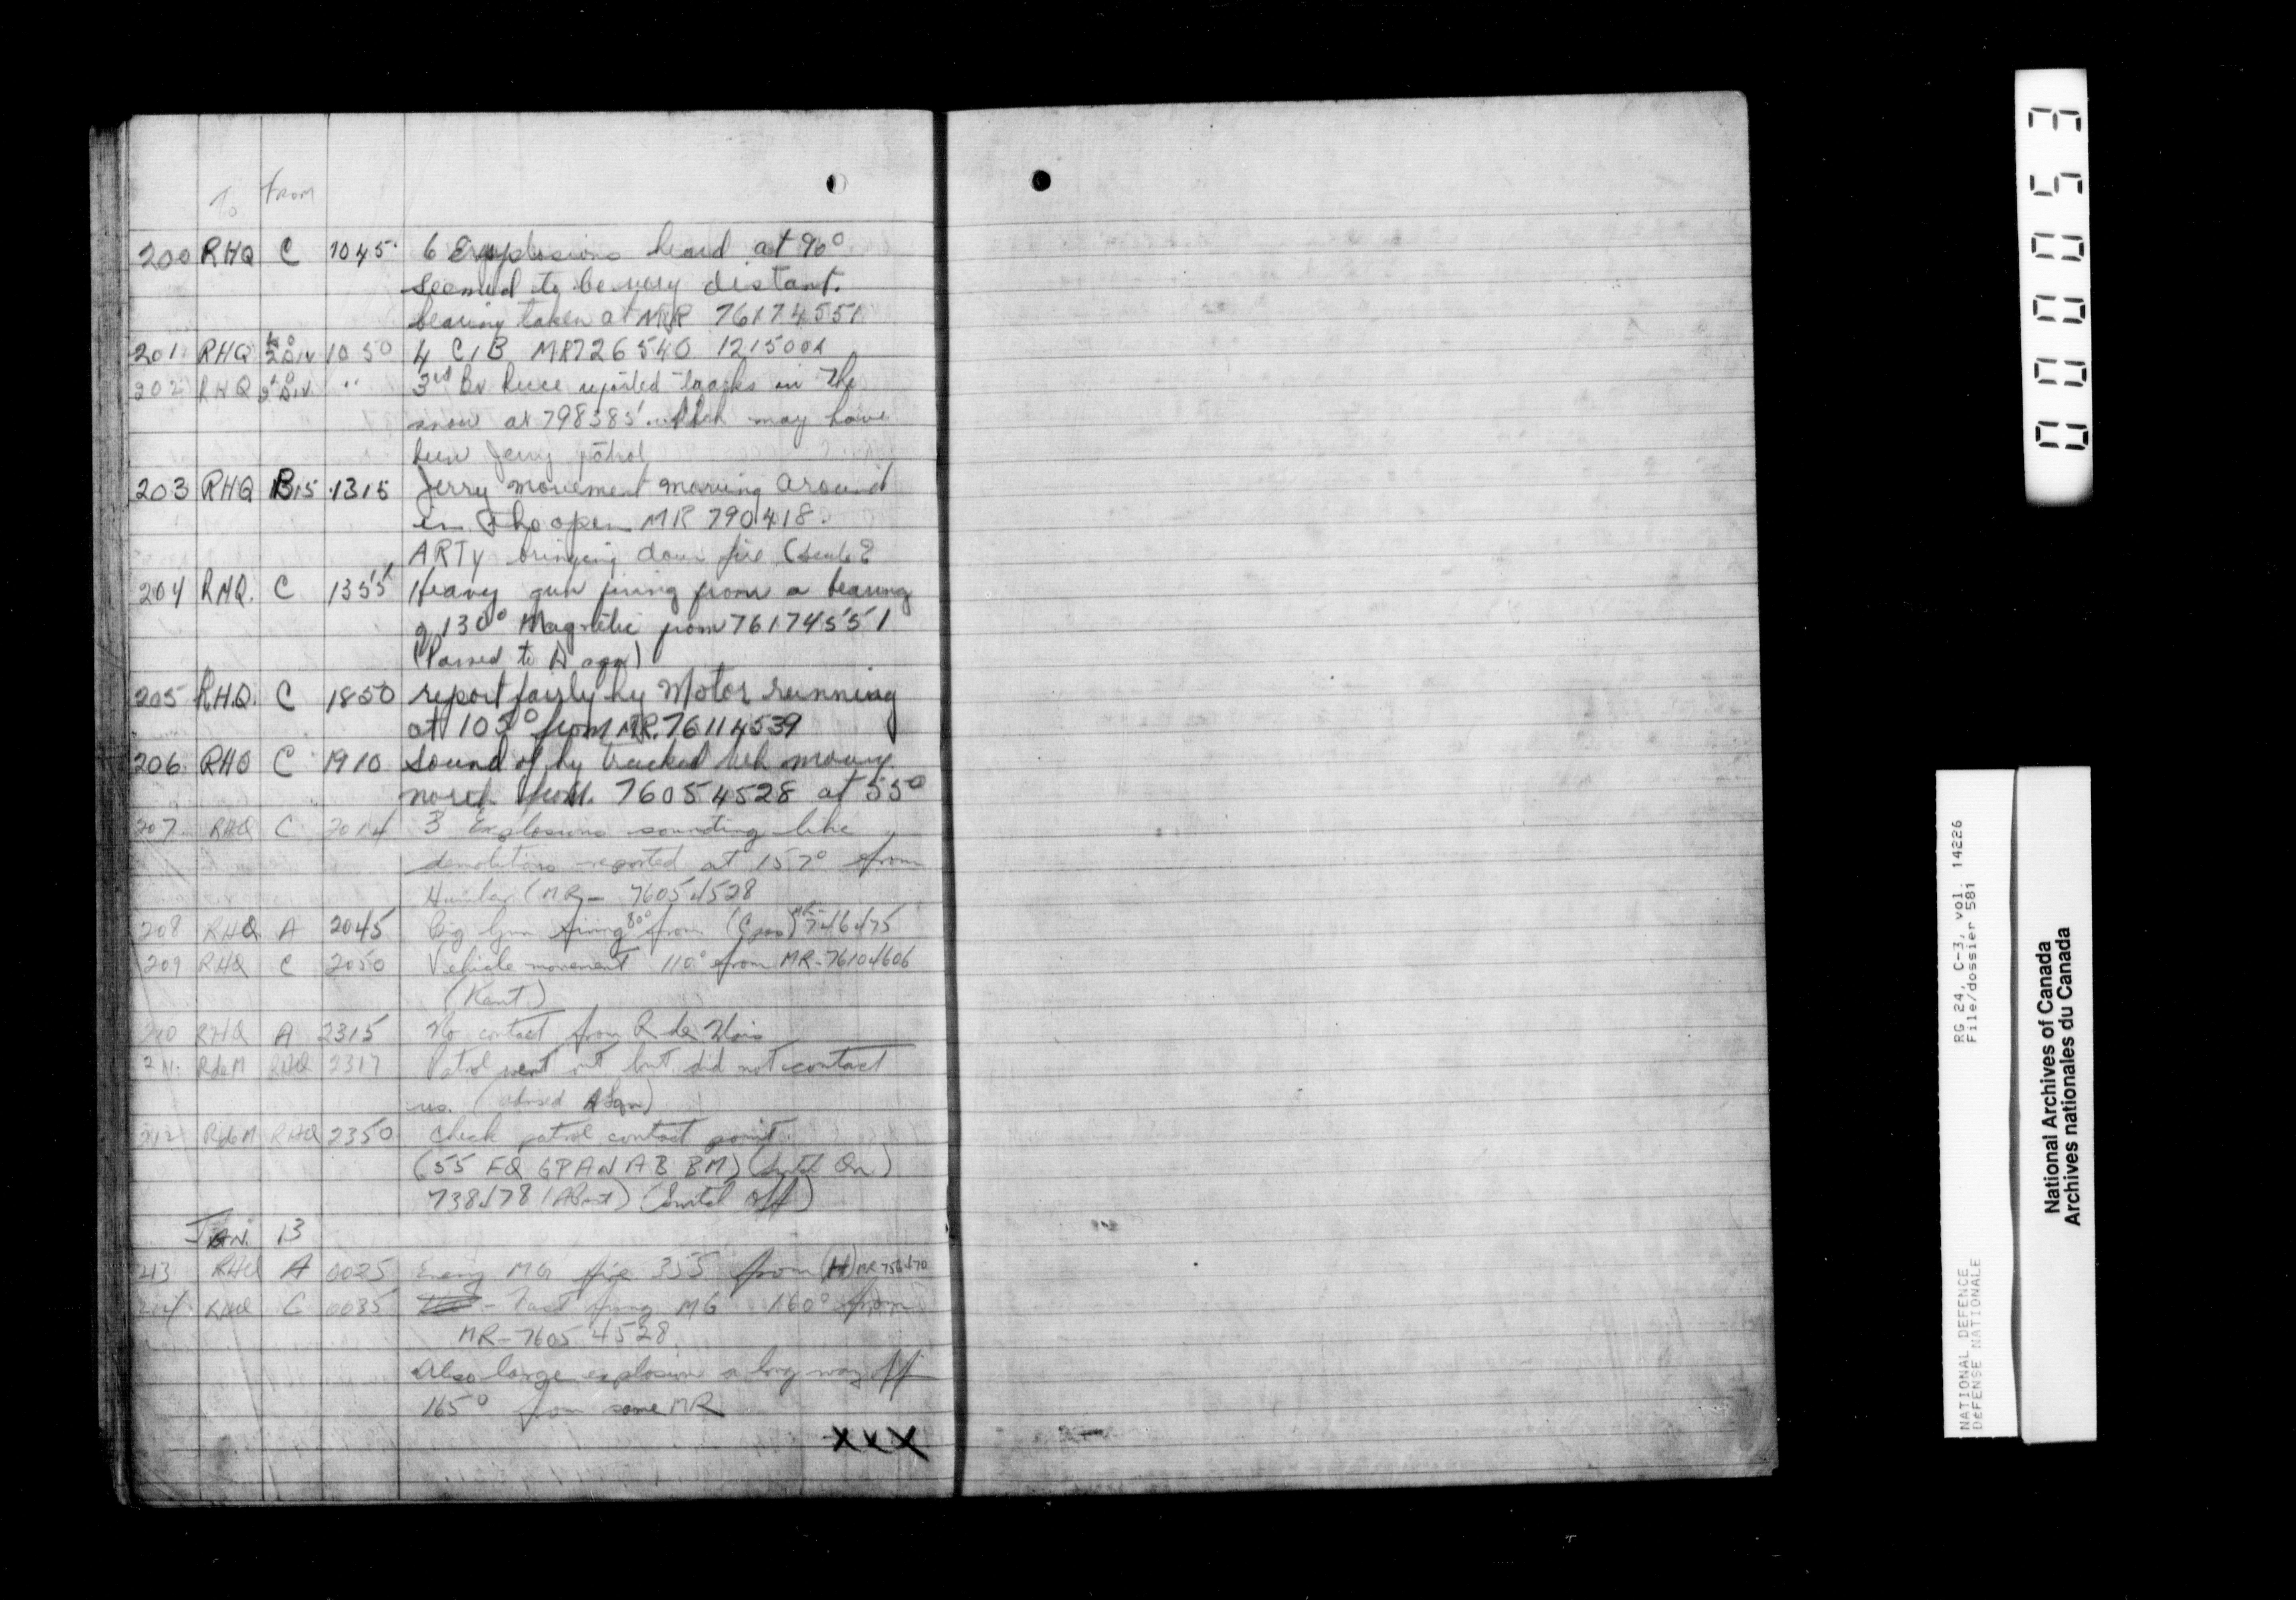 To From
200 RHQ C 1045 6 Explosions heard at 90°
seemed to be very distant.
bearing taken at MR 76174551
201 RHQ LO 2 Div 1050 4 CIB MR 726540 121500A
202 RHQ LO 2 Div " 3rd Bn Recce reported tracks in the
snow at 798385 which may have
been Jerry patrol
203 RHQ B15 1315 Jerry movement moving around
in the open MR 790418.
ARTY bringing down fire (Scale
204 RHQ. C 1355 Heavy gun firing from a bearing
130° Magnetic from 76174551
(Passed to A sqn)
205 RHQ. C 1850 report fairly hy Motor running
at 105° from MR. 76114539
206 RHQ C 1910 Sound of hy tracked veh moving
north from 76054528 at 55°
207. RHQ C 2014 3 Explosions sounding like
demolitions reported at 157° from
(MR - 76054528
208 RHQ A 2045 Big Gun firing 80° from (C pos) MR 746475
209 RHQ C 2050 Vehicle movement 110° from MR-76104606
(Kent)
210 RHQ A 2315 No contact from R de Mais
211. RdeM RHQ 2317 Patrol went out but did not contact
us. (advised A Sqn)
212 RdeM RHQ 2350 Check patrol contact point.
(55 FQ GPAN AB BM) (Switch On)
738478 (Switch Off)
JAN. 13
213 RHQ A 0025 Enemy MG fire 355 from (H) MR 756470
214 RHQ C 0035 - Fast firing MG 160° from
MR-76054528
Also large explosion a long way off
165° from same MR
XXX
000053
RG 24, C-3, vol. 14226
File/dossier 581
NATIONAL DEFENCE
DÉFENSE NATIONALE
National Archives of Canada
Archives nationales du Canada